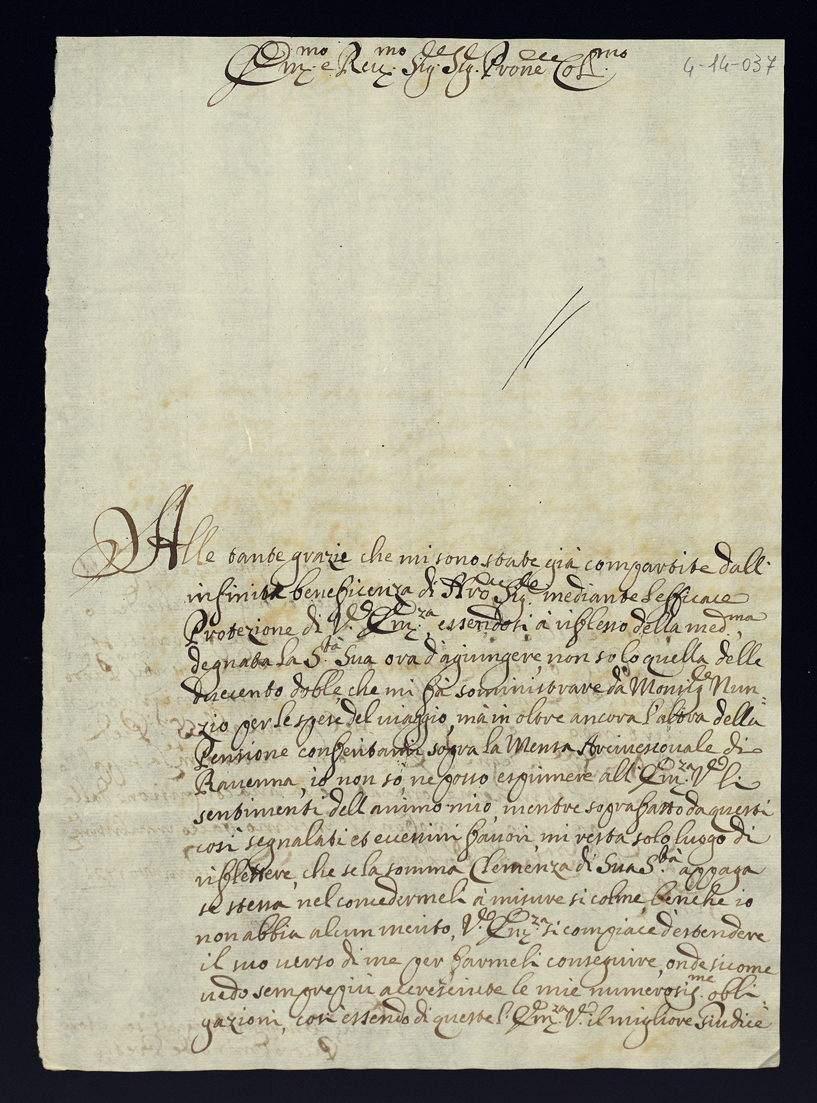 Em.mo e Rev.mo Sig.re Sig.re Prone Coll.mo
4-14-037
Alle tante grazie che mi sono state già compartite dall'
infinita beneficenza di Nro Sig.re mediante l'efficace
Protezione di V.a Em.za, essendosi à riflesso della med.ma
degnata la S.tà Sua ora d'agiungere, non solo quella delle
duecento doble, che mi fà somministrare da Monsig.re Nun=
zio per le spese del viaggio, mà in oltre ancora l'altra della
Pensione conferitami sopra la Mensa Arcivescovale di
Ravenna, io non sò ne posso esprimere all' Em.za V.a li
sentimenti dell'animo mio, mentre soprafatto da questi
così segnalati et eccessivi favori, mi resta solo luogo di
riflettere, che se la somma Clemenza di Sua S.tà appaga
se stessa nel concedermeli à misure si colme, benche io
non abbia alcun merito, V.a Em.za si compiace d'estendere
il suo verso di me per farmeli conseguire, onde sicome
vedo sempre più accresciute le mie numerosis.me obli=
gazioni, così essendo di queste l'Em.za V.a il migliore Giudice